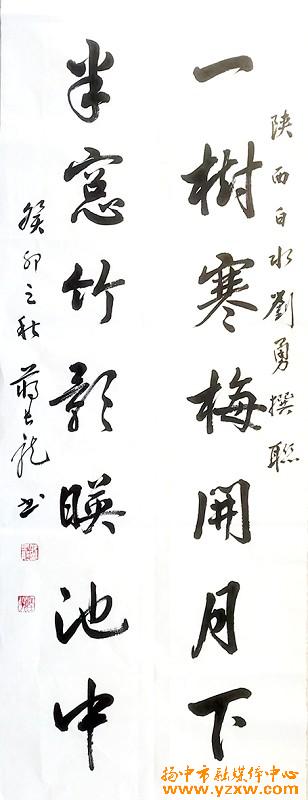 陕西白水劉勇撰聯
一樹寒梅開月下
半窓竹影暎池中
癸卯之秋蔣長龍书
扬中市融媒体中心
www.yzxw.com